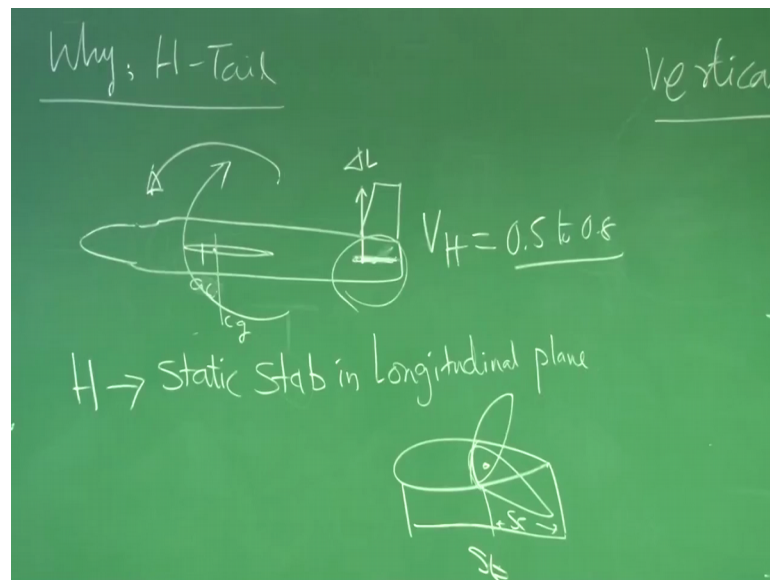 Why; H-Tail
Vertica
ΔL
V_H = 0.5 to 0.8
ac
cg
H → Static Stab in Longitudinal plane
Se
St